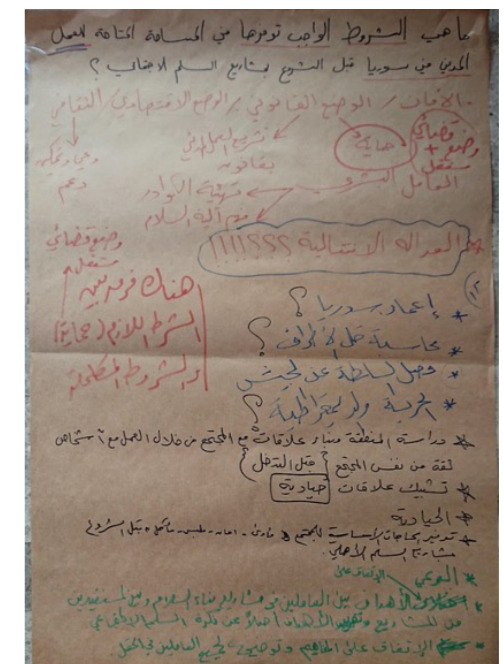 ما هي الشروط الواجب توفرها في المساحة المتاحة للعمل
المدني في سوريا قبل الشروع بمشاريع السلم الاجتماعي ؟
- الأمان / الوضع القانوني / الوضع الاقتصادي / الثقافي
وضع قضائي + مستقل
حماية
تشريع العمل المدني
بقانون
وعي وتمكين
دعم
العامل البشري
تهيئة الكوادر
فهم آلية السلام
وضع قضائي
مستقل
* العدالة الانتقالية ؟؟؟؟!!!!
هناك فرق بين
الشرط اللازم (حماية)
والشروط المكملة
* إعمار سوريا ؟
* محاسبة كل الأطراف ؟
* فصل السلطة عن الجيش
* الحرية والديمقراطية ؟
* دراسة المنطقة وبناء علاقات مع المجتمع من خلال العمل مع أشخاص
ثقة من نفس المجتمع { قبل التدخل }
* تشبيك علاقات حيادية
* الحيادية
* توفير الحاجات الأساسية للمجتمع مأوى - أمان - ملبس - مأكل قبل الشروع
بمشاريع السلم الأهلي
* الوعي
الاتفاق على
* الأهداف بين العاملين في مشاريع بناء السلام ومع المستفيدين
من المشاريع الأهداف أصلاً عن فكرة السلم الاجتماعي
* الاتفاق على المفاهيم وتوضيحها لجميع العاملين في الحقل